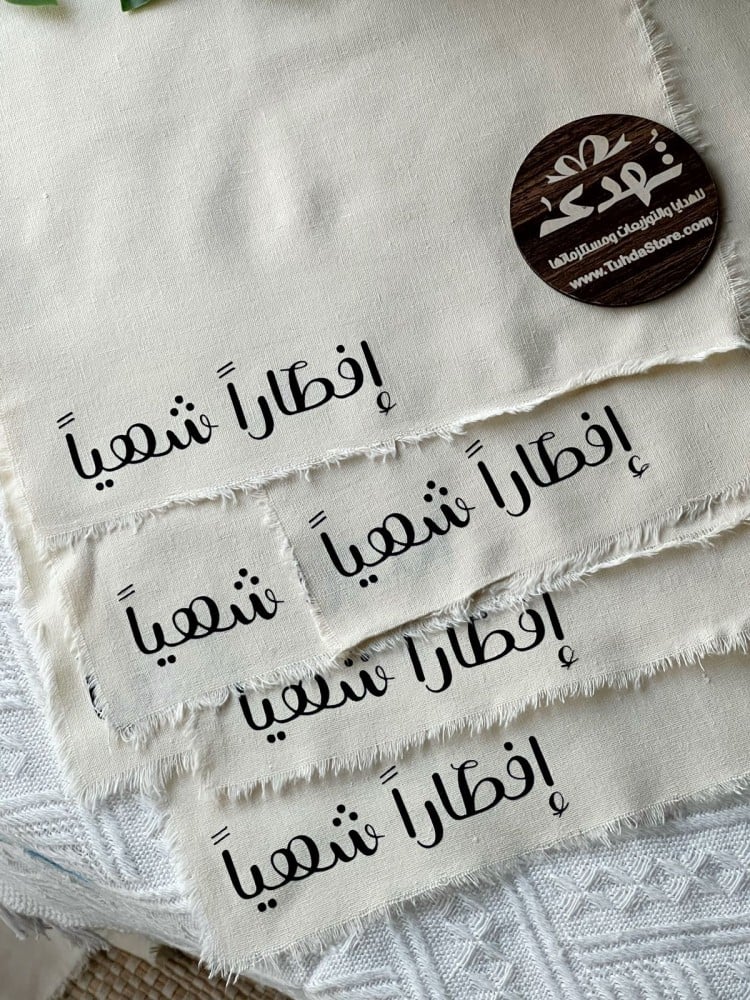 تُهدىٰ
للهدايا والتوزيعات ومستلزماتها
www.TuhdaStore.com
إفطاراً شهياً
إفطاراً شهياً
شهياً
إفطاراً شهياً
إفطاراً شهياً